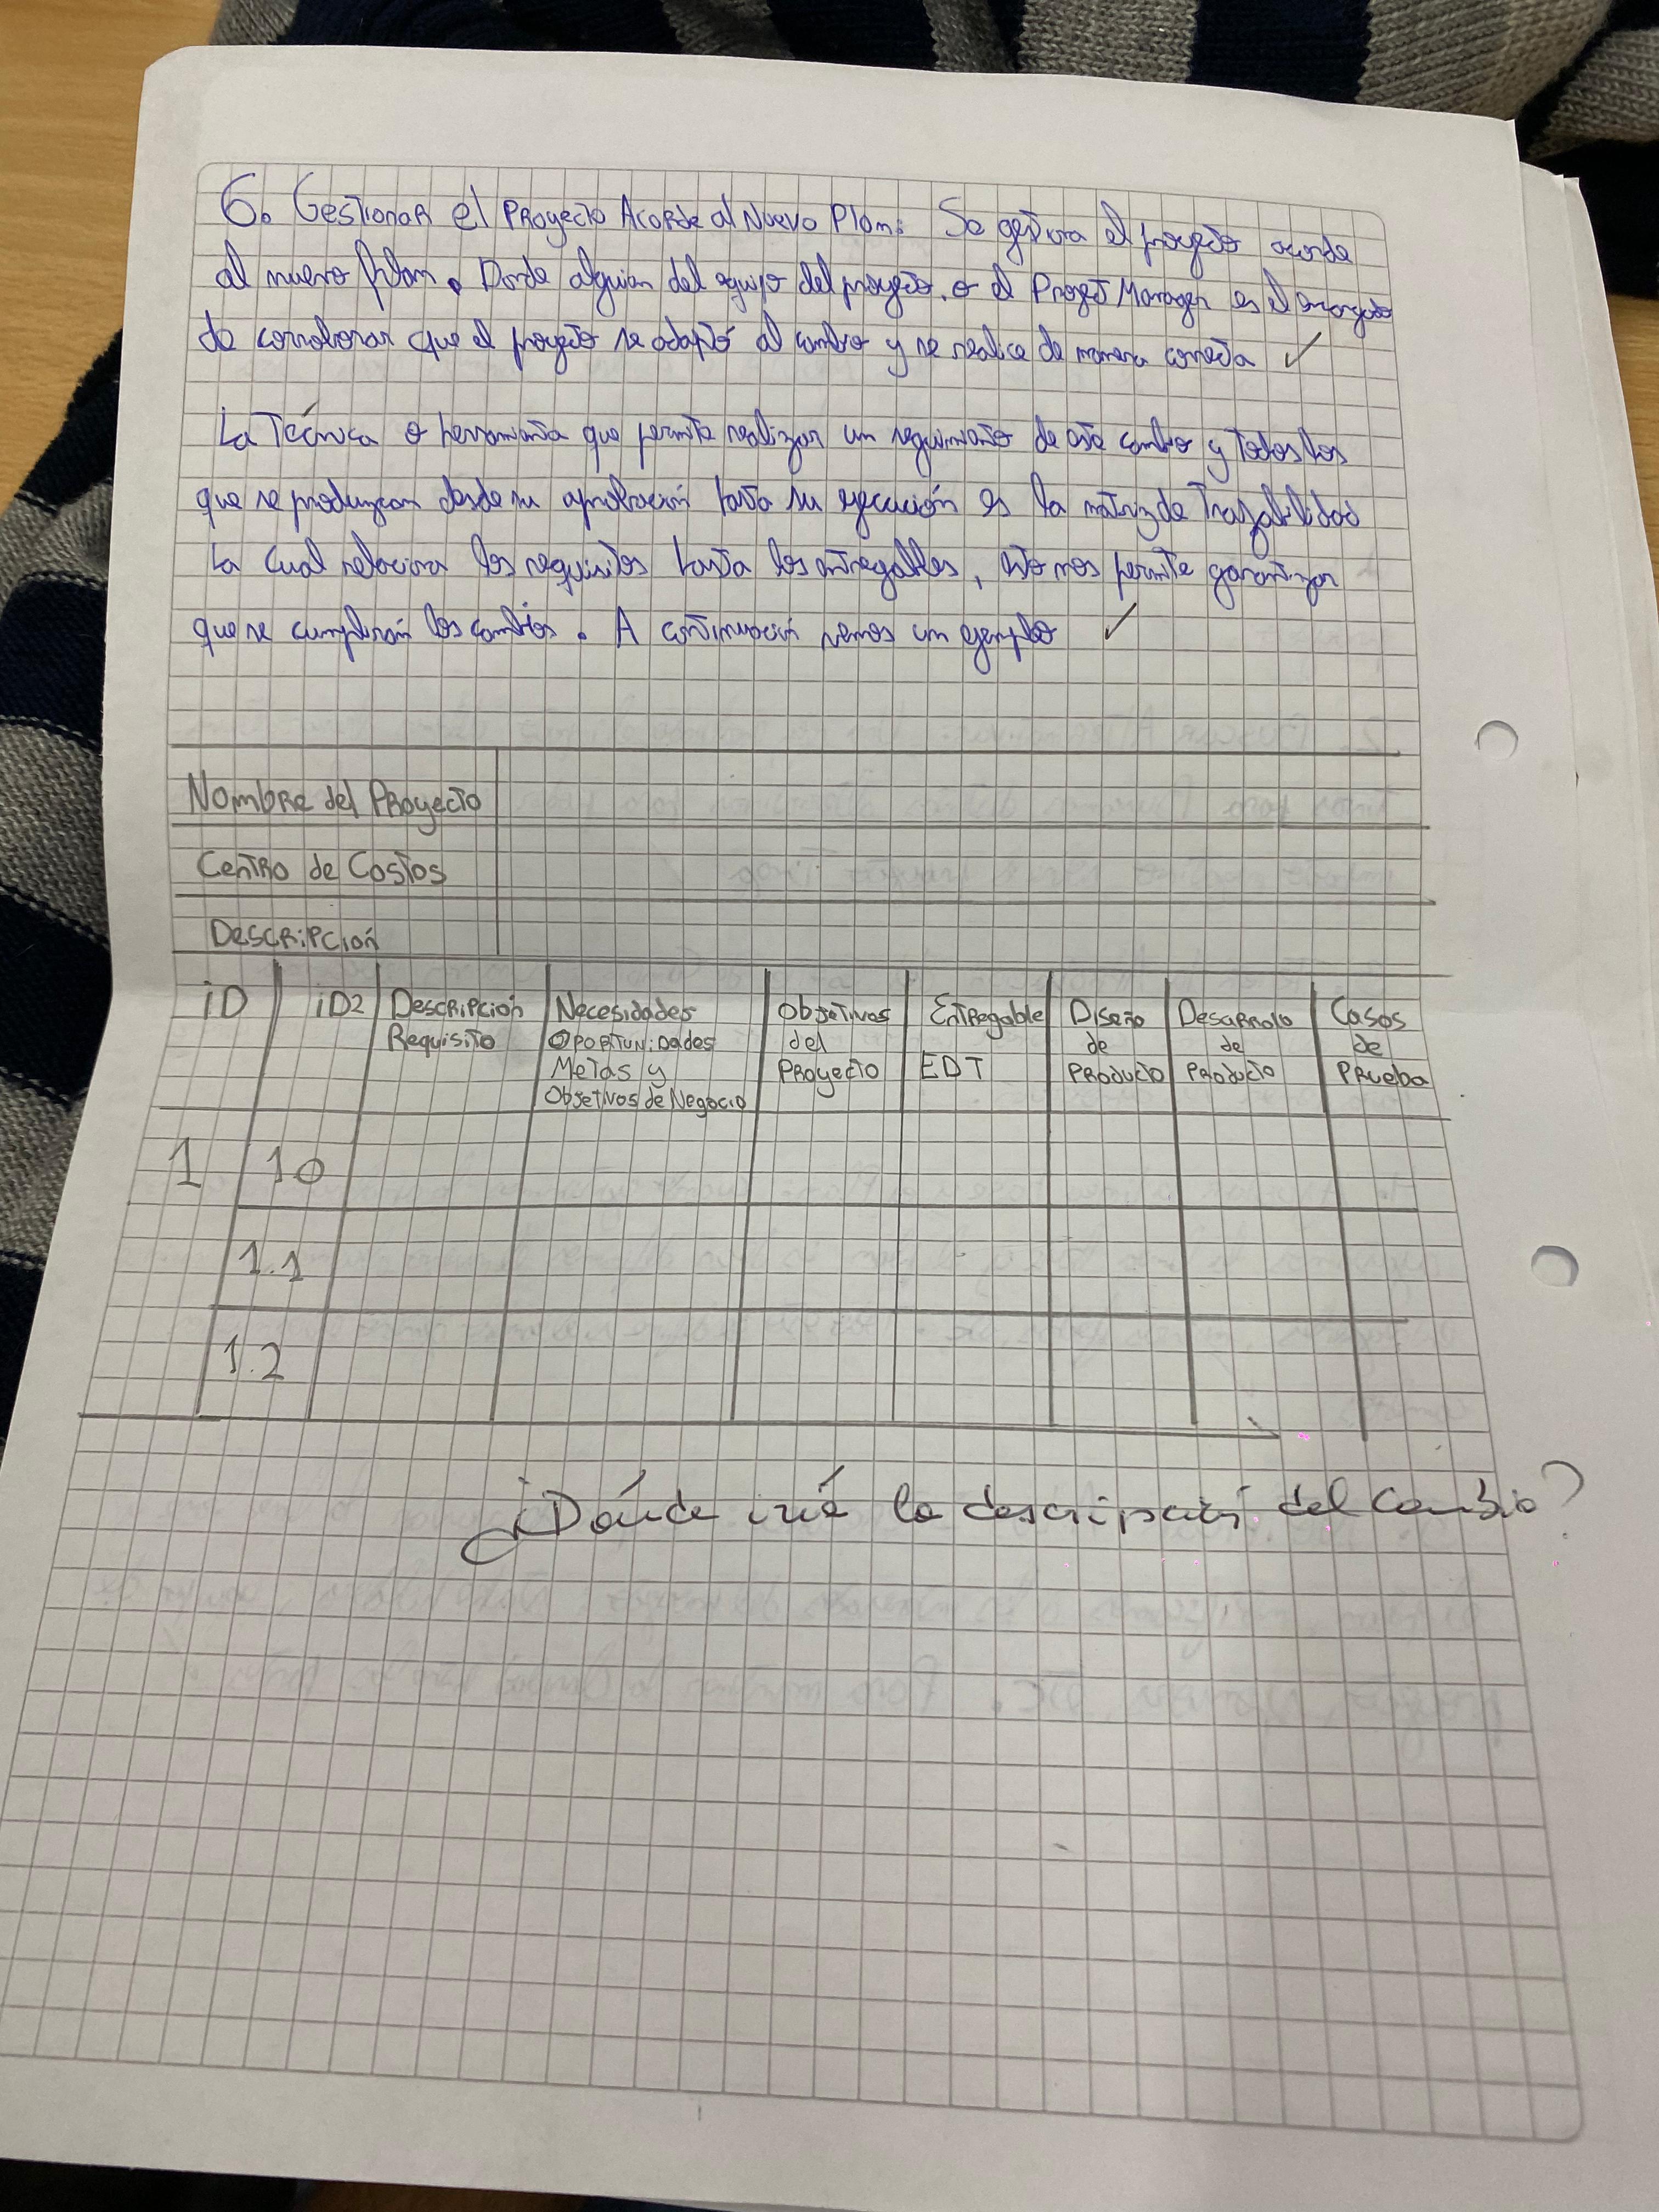 6. Gestionar el Proyecto Acorde al Nuevo Plan: Se gestiona el proyecto acorde
al nuevo plan. Donde alguien del equipo del proyecto, o el Project Manager es el encargado
de corroborar que el proyecto se adaptó al cambio y se realice de manera correcta ✓
La Técnica o herramienta que permite realizar un seguimiento de este cambio y todos los
que se produzcan desde su aprobación hasta su ejecución es la matriz de Trazabilidad
La cual relaciona los requisitos hasta los entregables, esto nos permite garantizar
que se cumplirán los cambios. A continuación vemos un ejemplo ✓
Nombre del Proyecto
Centro de Costos
Descripción
iD iD2 Descripcion Necesidades Objetivos Entregable Diseño Desarrolo Casos
Requisito Oportunidades del de de de
Metas y Proyecto EDT Producto Producto Prueba
Objetivos de Negocio
1 10
1.1
1.2
¿Dónde iría la descripción del cambio?